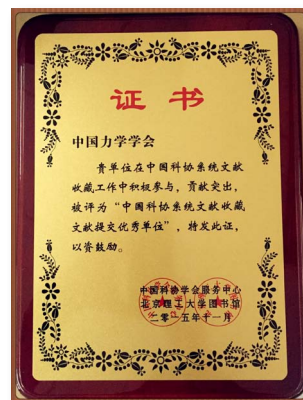 证书
中国力学学会
贵单位在中国科协系统文献
收藏工作中积极参与，贡献突出，
被评为“中国科协系统文献收藏
文献提交优秀单位”，特发此证，
以资鼓励。
中国科协学会服务中心
北京理工大学图书馆
二零一五年十一月